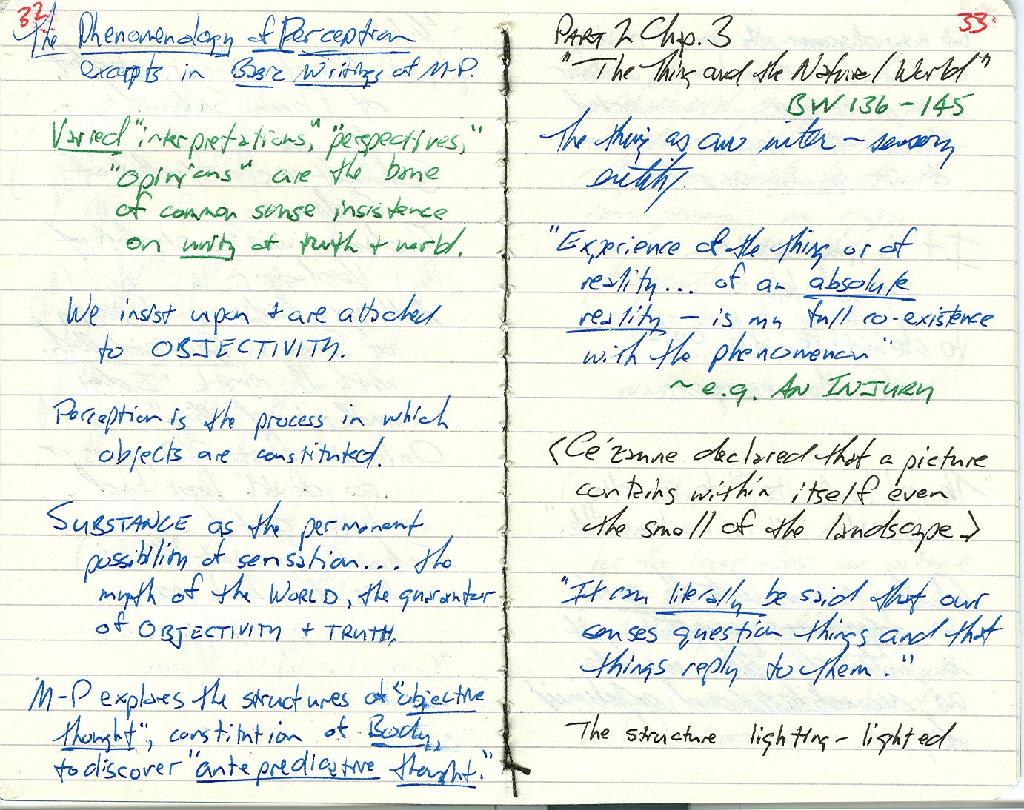 32
The Phenomenology of Perception
excerpts in Basic Writings of M-P.
Varied "interpretations," "perspectives,"
"opinions" are the bane
of common sense insistence
on unity of truth + world.
We insist upon + are attached
to OBJECTIVITY.
Perception is the process in which
objects are constituted.
SUBSTANCE as the permanent
possibility of sensation... the
myth of the WORLD, the guarantor
of OBJECTIVITY + TRUTH.
M-P explores the structures of "objective
thought", constitution of Body,
to discover "ante predicative thought."
33
PART 2 Chp. 3
"The Thing and the Natural World"
BW 136-145
The thing as an inter-sensory
entity.
"Experience of the thing or of
reality... of an absolute
reality - is my full co-existence
with the phenomenon"
~ e.g. AN INJURY
<Cézanne declared that a picture
contains within itself even
the smell of the landscape>
"It can literally be said that our
senses question things and that
things reply to them."
The structure lighting-lighted